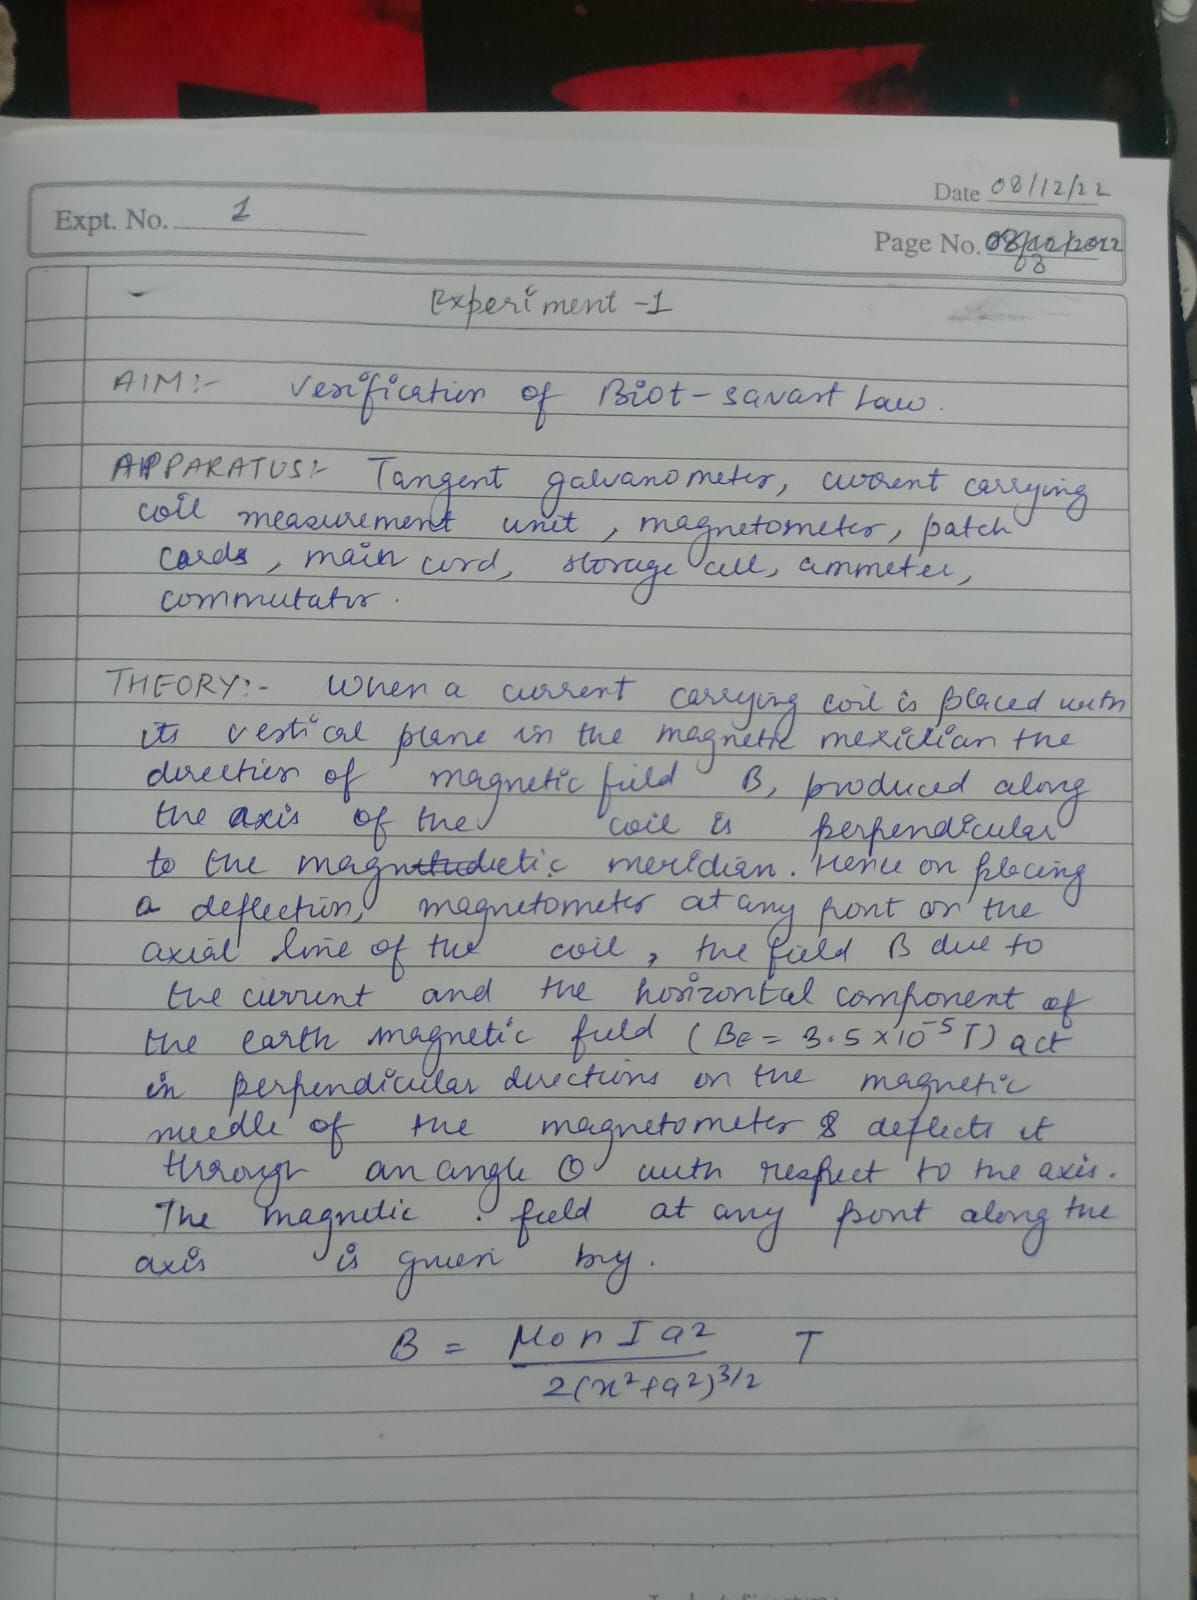 Date 08/12/22
Expt. No. 1
Page No. 08
Experiment -1
AIM:- Verification of Biot-Savart Law.
APPARATUS:- Tangent galvanometer, current carrying
coil measurement unit, magnetometer, patch
cards, main cord, storage cell, ammeter,
commutator.
THEORY:- When a current carrying coil is placed with
its vertical plane in the magnetic meridian the
direction of magnetic field B, produced along
the axis of the coil is perpendicular
to the magnetic meridian. Hence on placing
a deflection magnetometer at any pont on the
axial line of the coil, the field B due to
the current and the horizontal component of
the earth magnetic field (BE = 3.5 x 10⁻⁵ T) act
in perpendicular directions on the magnetic
needle of the magnetometer & deflects it
through an angle θ with respect to the axis.
The magnetic field at any pont along the
axis is given by.
B = μ₀ n I a² / 2(x²+a²)^3/2 T